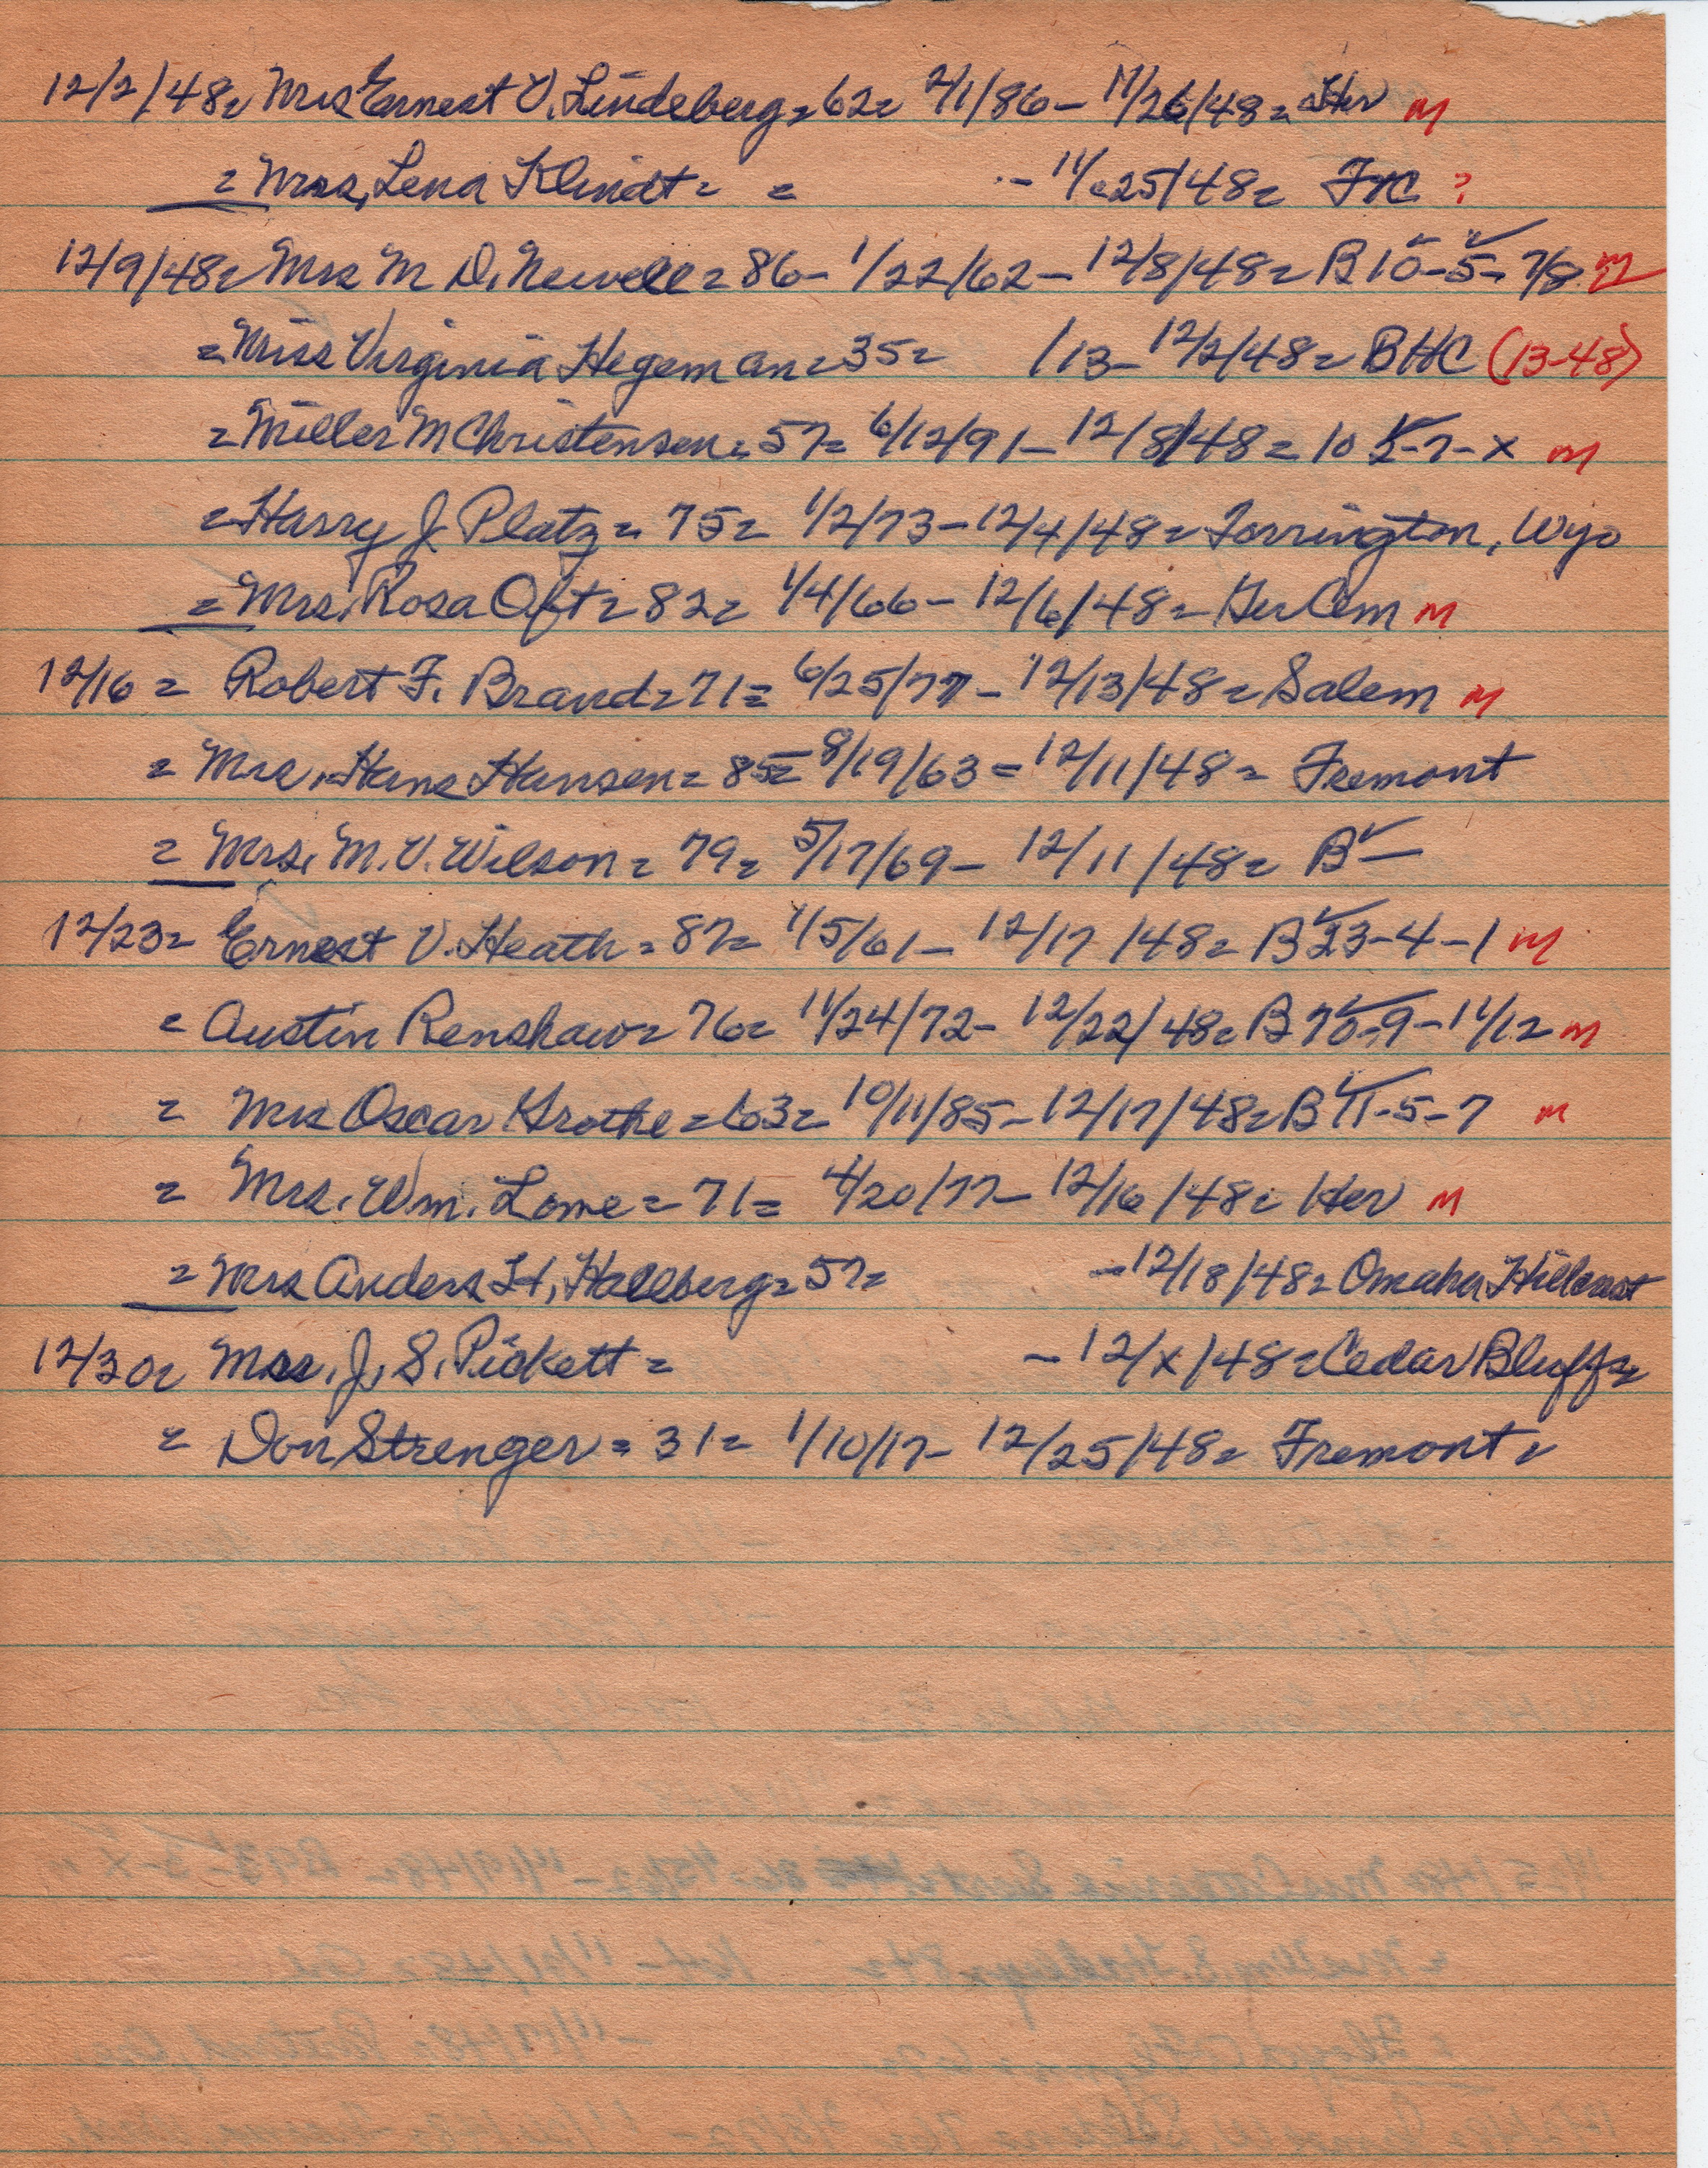 12/2/48= Mrs Ernest V. Lindeberg= 62= 2/1/86- 11/26/48= Her M
= Mrs, Lena Klindt= = - 11/25/48= FHC ?
12/9/48= Mrs M D. Newell= 86- 1/22/62- 12/8/48= B 10-5-7/8 M
= Miss Virginia Hegeman= 35= /13- 12/2/48= BHC (13-48)
= Miller M Christensen= 57= 6/12/91- 12/8/48= 10 5-7-X M
= Harry J. Platz= 75= 1/2/73- 12/4/48= Torrington, Wyo
= Mrs. Rosa Oft= 82= 1/4/66- 12/6/48= Ger Cem M
12/16= Robert F. Brand= 71= 6/25/77- 12/13/48= Salem M
= Mrs. Hans Hansen= 85= 8/19/63= 12/11/48= Fremont
= Mrs. M. V. Wilson= 79= 5/17/69- 12/11/48= B-
12/23= Ernest V. Heath= 87= 1/5/61- 12/17/48= B 23-4-1 M
= Austin Renshaw= 76= 11/24/72- 12/22/48= B 70-9-11/12 M
= Mrs Oscar Grothe= 63= 10/11/85- 12/17/48= B 11-5-7 M
= Mrs. Wm. Lowe= 71= 4/20/77- 12/16/48= Her M
= Mrs Anders H. Hallberg= 57= - 12/18/48= Omaha Hillcrest
12/30= Mrs. J. S. Pickett= - 12/x/48= Cedar Bluffs
= Don Strenger= 31= 1/10/17- 12/25/48= Fremont=